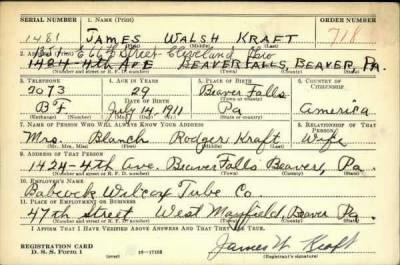 SERIAL NUMBER 1. NAME (Print) ORDER NUMBER
1481 JAMES WALSH KRAFT 718
(First) (Middle) (Last)
E 66th Street Cleveland Ohio
2. ADDRESS (Print)
1424-4th AVE BEAVER FALLS, BEAVER, PA.
(Number and street or R. F. D. number) (Town) (County) (State)
3. TELEPHONE 4. AGE IN YEARS 5. PLACE OF BIRTH 6. COUNTRY OF CITIZENSHIP
2073 29 Beaver Falls
DATE OF BIRTH (Town or county)
BF July 14 1911 Pa America
(Exchange) (Number) (Mo.) (Day) (Yr.) (State or country)
7. NAME OF PERSON WHO WILL ALWAYS KNOW YOUR ADDRESS 8. RELATIONSHIP OF THAT PERSON
Mrs Blanch Rodgers Kraft Wife
(Mr., Mrs., Miss) (First) (Middle) (Last)
9. ADDRESS OF THAT PERSON
1424-4th Ave. Beaver Falls Beaver, Pa.
(Number and street or R. F. D. number) (Town) (County) (State)
10. EMPLOYER'S NAME
Babcock Wilcox Tube Co.
11. PLACE OF EMPLOYMENT OR BUSINESS
47th Street West Mayfield, Beaver Pa.
(Number and street or R. F. D. number) (Town) (County) (State)
I AFFIRM THAT I HAVE VERIFIED ABOVE ANSWERS AND THAT THEY ARE TRUE.
REGISTRATION CARD
D. S. S. FORM 1 James W Kraft
(Registrant's signature)